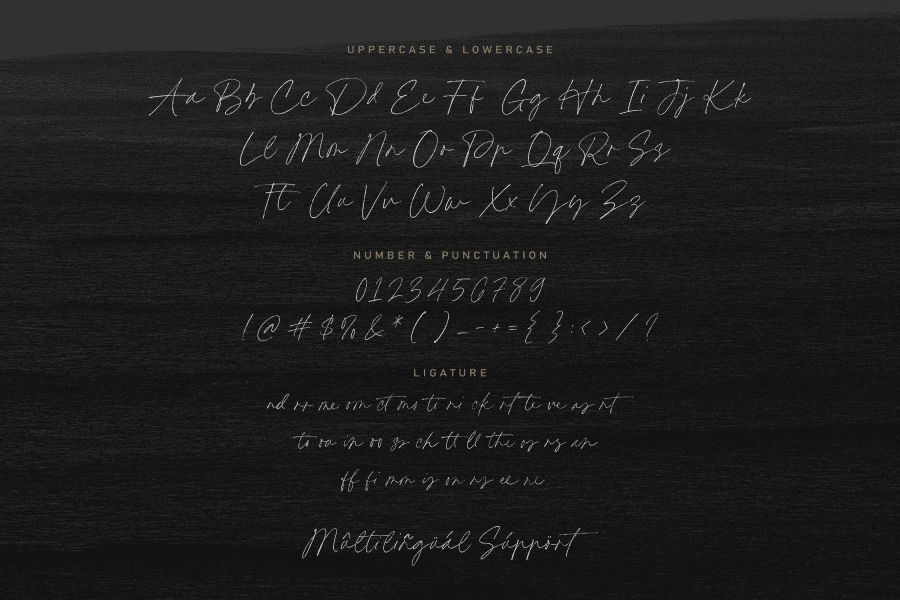 UPPERCASE & LOWERCASE
Aa Bb Cc Dd Ee Ff Gg Hh Ii Jj Kk
Ll Mm Nn Oo Pp Qq Rr Ss
Tt Uu Vv Ww Xx Yy Zz
NUMBER & PUNCTUATION
0123456789
! @ # $ % & * ( ) _ - + = { } : < > / ?
LIGATURE
nd rr me om ct mo to ri ck rt te ve as nt
to oa in oo ss ch tt ll the os rs an
ff fi mm is on ns ee ni
Mûltilíñgüàl Súppört